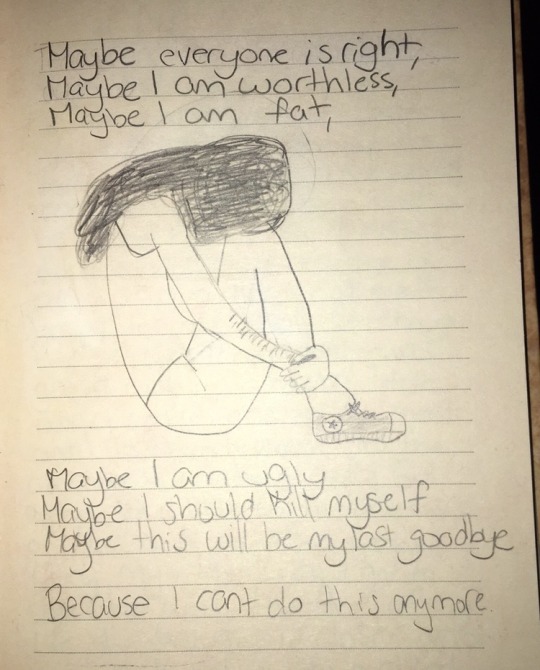 Maybe everyone is right,
Maybe I am worthless,
Maybe I am fat,
Maybe I am ugly
Maybe I should kill myself
Maybe this will be my last goodbye
Because I cant do this anymore.